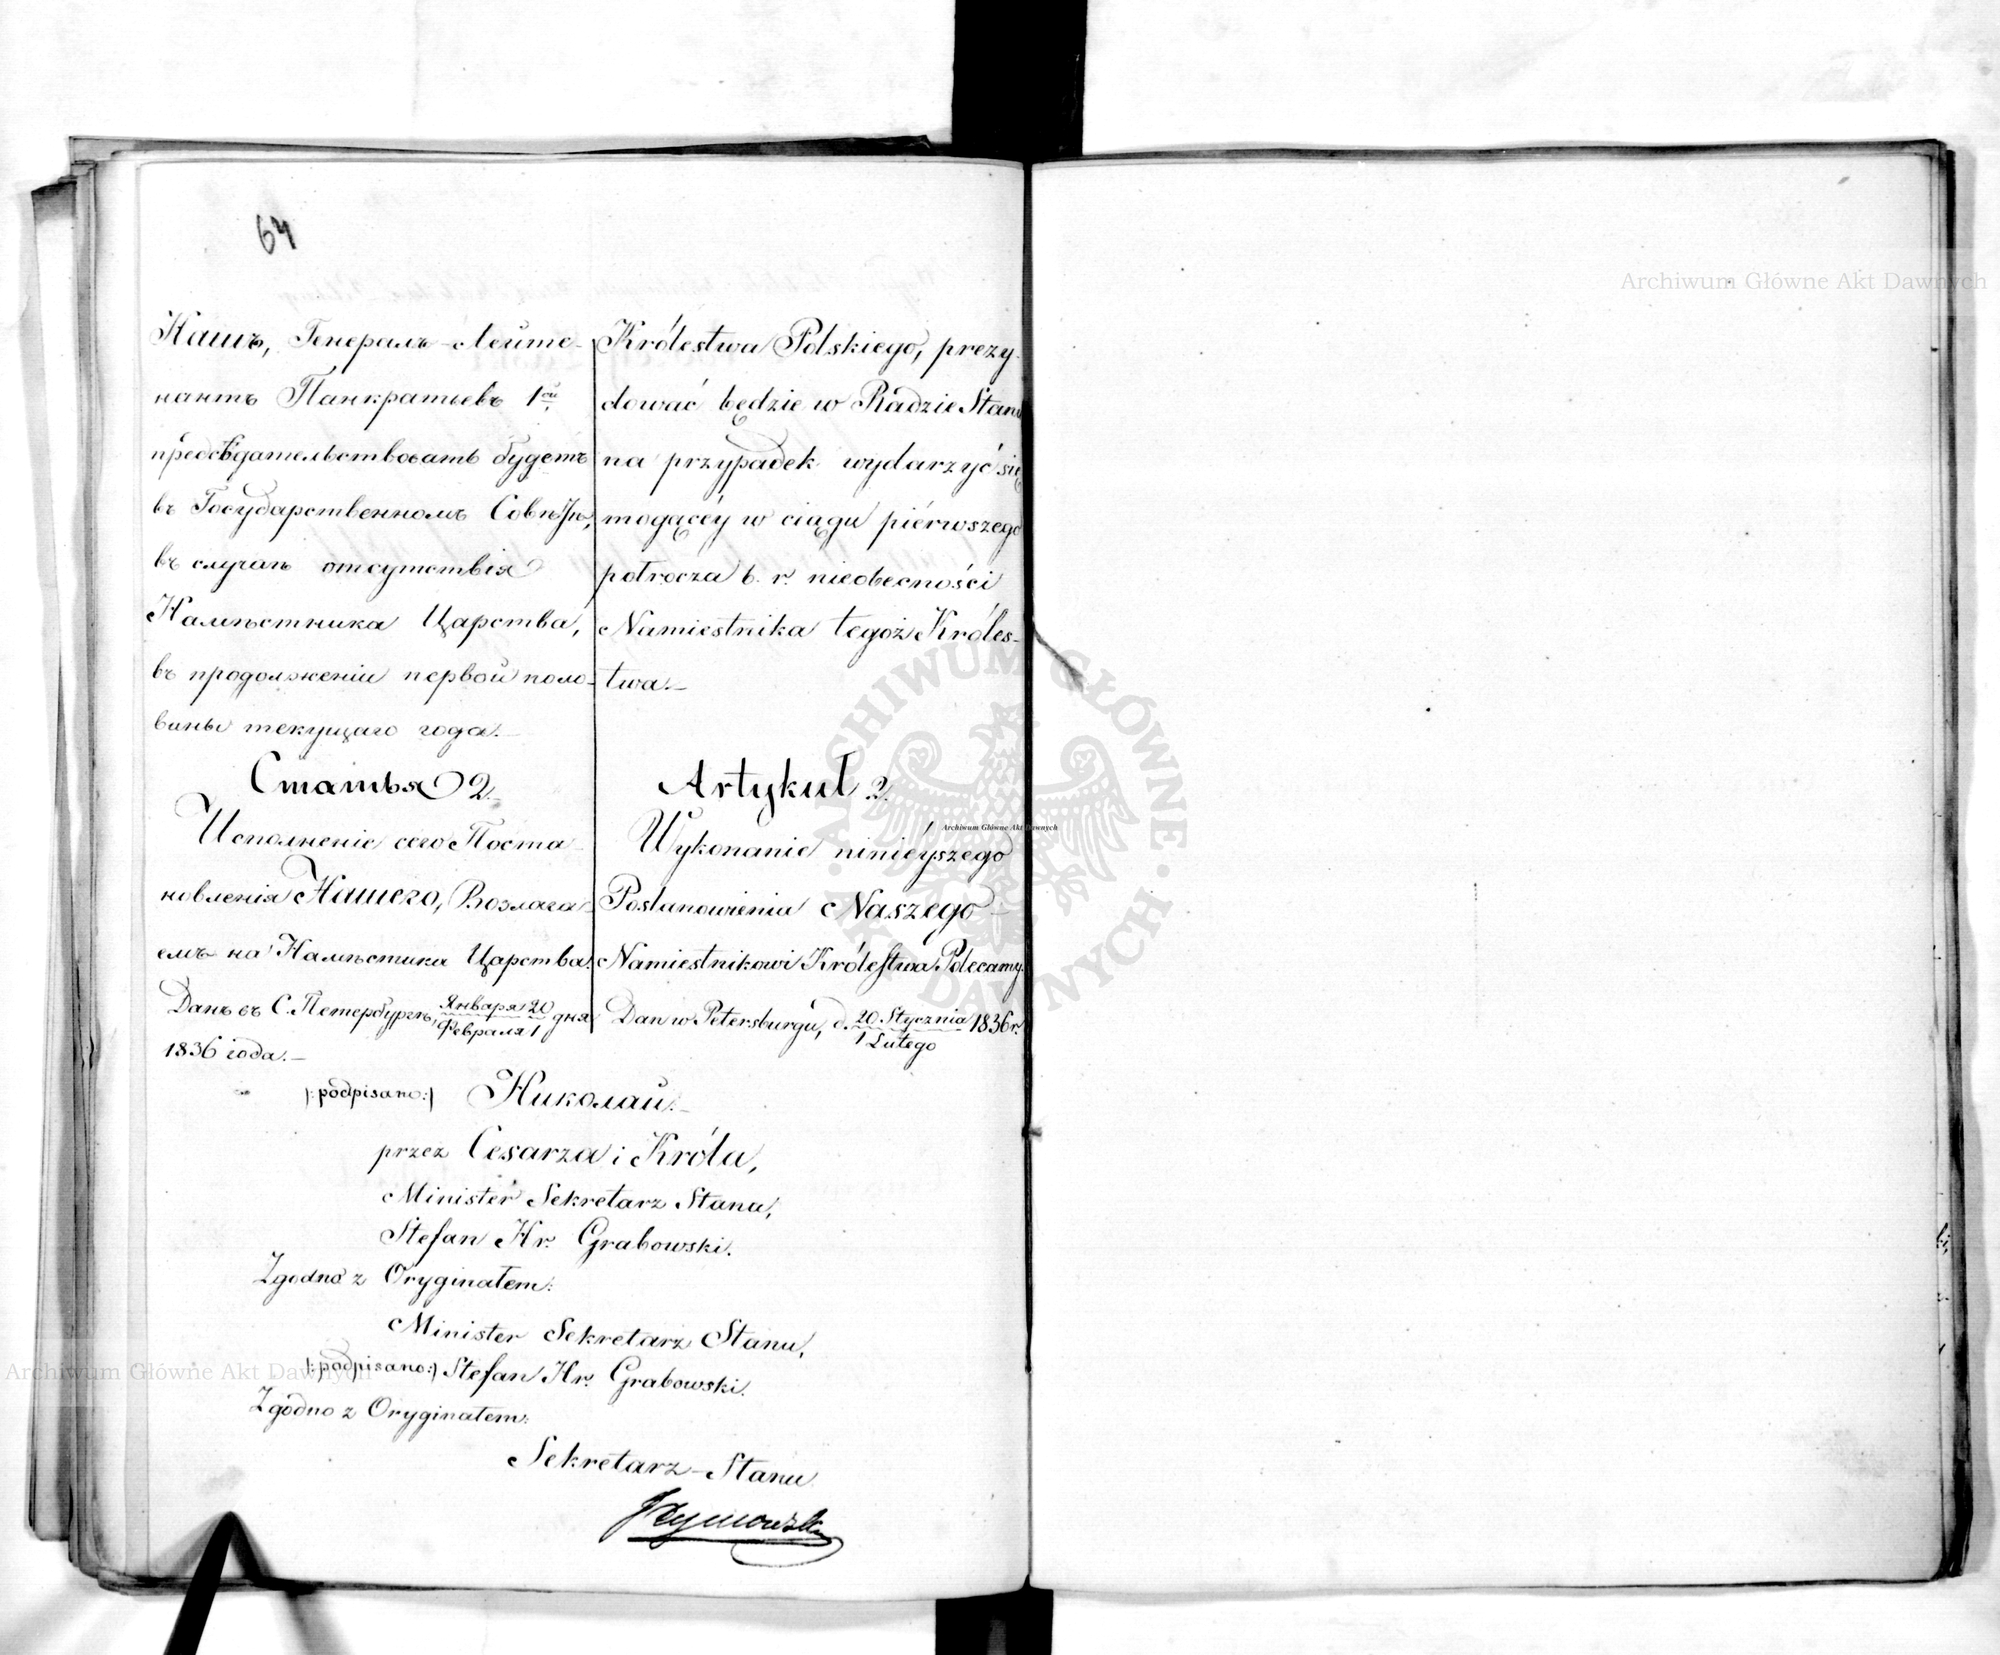 64
Нашъ, Генералъ-Лейте-
нантъ Панкратьевъ 1ой,
предсѣдательствовать будетъ
въ Государственномъ Совѣтѣ,
въ случаѣ отсутствія
Намѣстника Царства,
въ продолженіи первой поло-
вины текущаго года.
Статья 2.
Исполненіе сего Поста-
новленія Нашего, Возлага-
емъ на Намѣстника Царства.
Данъ въ С. Петербургѣ, Января 20 / Февраля 1 дня
1836 года.
Królestwa Polskiego, prezy-
dować będzie w Radzie Stanu
na przypadek wydarzyć się
mogącéy w ciągu piérwszego
półrocza b. r. nieobecności
Namiestnika tegoż Króles-
twa.
Artykuł 2.
Wykonanie ninieyszego
Postanowienia Naszego
Namiestnikowi Królestwa Polecamy.
Dan w Petersburgu, d. 20 Stycznia / 1 Lutego 1836 r.
/:podpisano:/ Николай.
przez Cesarza i Króla,
Minister Sekretarz Stanu,
Stefan Hr. Grabowski.
Zgodno z Oryginałem:
Minister Sekretarz Stanu,
/:podpisano:/ Stefan Hr. Grabowski.
Zgodno z Oryginałem:
Sekretarz Stanu
Archiwum Główne Akt Dawnych
Archiwum Główne Akt Dawnych
Archiwum Główne Akt Dawnych
ARCHIWUM GŁÓWNE AKT DAWNYCH